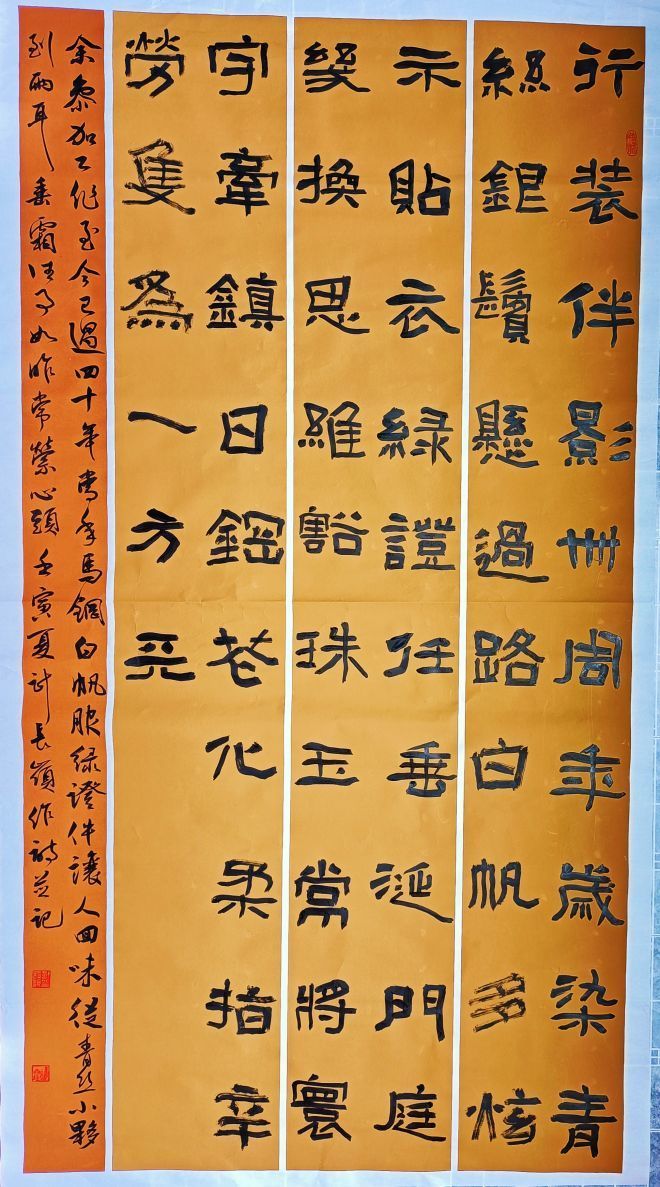 行裝伴影卌周年歲染青
絲銀鬢懸過路白帆多炫
示貼衣綠證任垂涎門庭
幾換思維豁珠玉常將寰
宇牽鎮日鋼花化柔指辛
勞隻為一方
余參加工作至今已過四十年當年馬鋼白帆服綠證件讓人回味從青絲小夥
到兩耳垂霜往事如昨常縈心頭壬寅夏計長嶺作詩並記